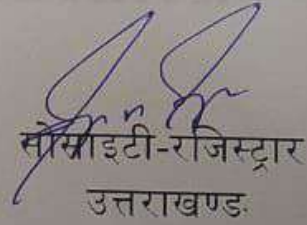 सोसाइटी-रजिस्ट्रार
उत्तराखण्ड.